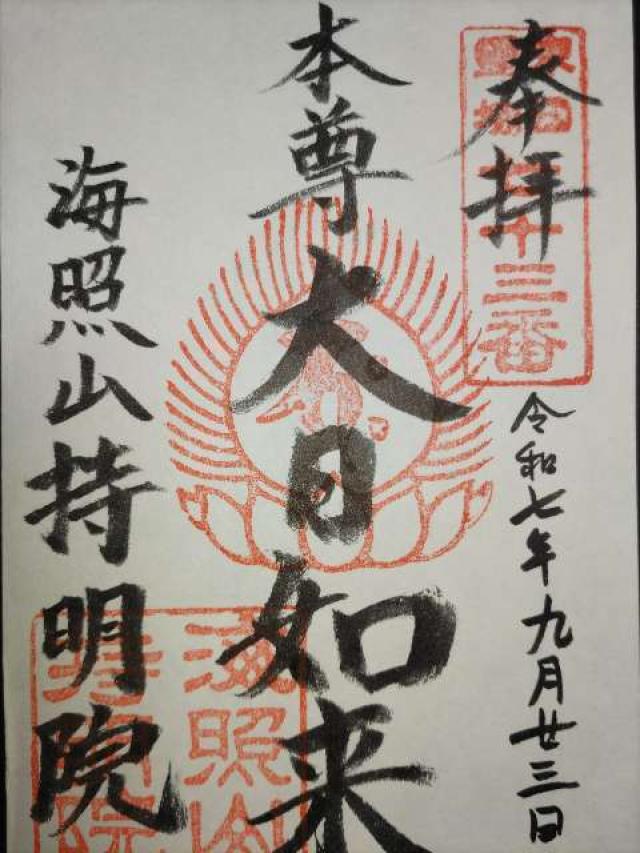 奉拝
令和七年九月廿三日
本尊
大日如来
海照山持明院
十三番
海照山